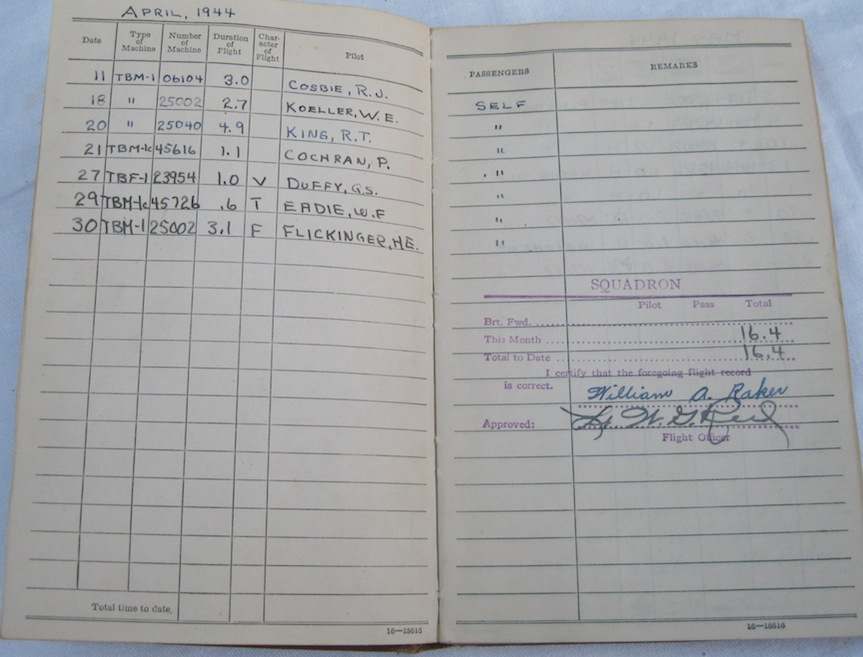 APRIL, 1944
Date Type of Machine Number of Machine Duration of Flight Char- acter of Flight Pilot
11 TBM-1 06104 3.0 COSBIE, R.J.
18 " 25002 2.7 KOELLER, W.E.
20 " 25040 4.9 KING, R.T.
21 TBM-1c 45616 1.1 COCHRAN, P.
27 TBF-1 23954 1.0 V DUFFY, G.S.
29 TBM-1c 45726 .6 T EADIE, W.F
30 TBM-1 25002 3.1 F FLICKINGER, HE.
Total time to date,
16—15615
PASSENGERS REMARKS
SELF
"
"
"
"
"
"
SQUADRON
Pilot Pass Total
Brt. Fwd.
This Month 16.4
Total to Date 16.4
I certify that the foregoing flight record
is correct. William A. Raker
Approved:
Flight Officer
16—15615